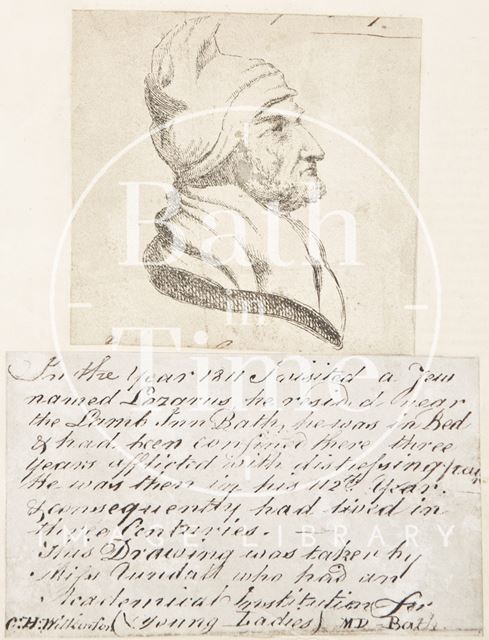 Bath
in
Time
IMAGE LIBRARY
In the Year 1811 I visited a Jew
named Lazarus, he resided near
the Lamb Inn Bath, he was in Bed
& had been confined there three
years afflicted with distressing pain
He was then in his 112th Year.
& consequently had lived in
three Centuries.
This Drawing was taken by
Miss Tundall who had an
Academical Institution for
C.H. Wilkinson (Young Ladies) MD Bath